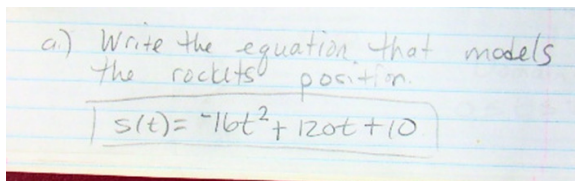 a.) Write the equation that models
the rockets position.
s(t)= -16t²+ 120t +10